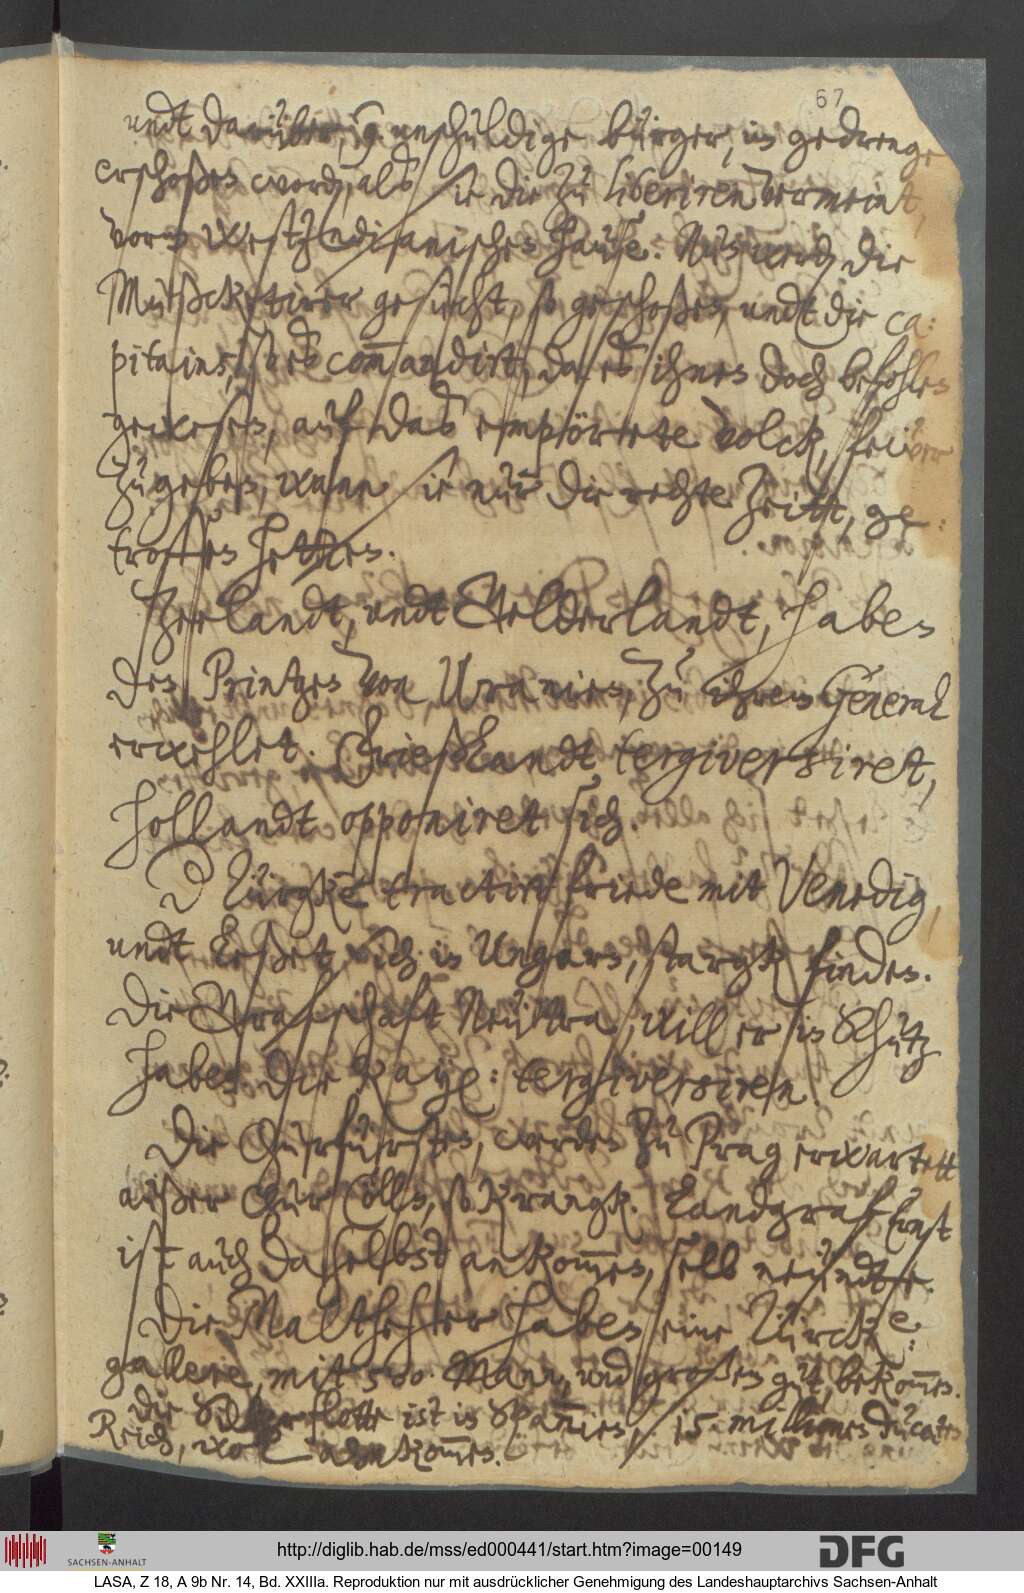 67
undt darüber, 9 unschuldige bürger, im gedrenge
erschoßen word, als sie die zu liberiren vermeint,
vorm Westphalischen hause. Nun werd die
Mußcketirer gesucht, so geschoßen, undt die ca:
pitains, so es commandirt, da es ihnen doch befohlen
gewesen, auf das empörete volck, feüer
zu geben, wann sie nur die rechte Zeitt, ge:
troffen hetten.
Zeelandt, undt Gelderlandt, haben
den Printzen von Uranien, zu ihrem General
erwehlet. Frießlandt tergiversiret,
Hollandt opponiret sich.
D Türgke tractirt friede mit Venedig,
undt leßet sich in Ungarn, stargk finden.
Die Grafschaft Neüttra, will er in Schutz
haben die Kaye: tergiversiren.
Die Churfürsten, werden zu Prag erwartett
außer Chur Cölln, so krangk. Landgraf Ernst
ist auch daselbst ankommen, selb neündte.
Die Maltheser haben eine Türcke:
gallere, mit 500 Mann, und großem gut, bekommen.
die Silberflotte ist in Spannien, 15 millionen Ducaten
Reich, wol ankommen.
SACHSEN-ANHALT
http://diglib.hab.de/mss/ed000441/start.htm?image=00149
DFG
LASA, Z 18, A 9b Nr. 14, Bd. XXIIIa. Reproduktion nur mit ausdrücklicher Genehmigung des Landeshauptarchivs Sachsen-Anhalt